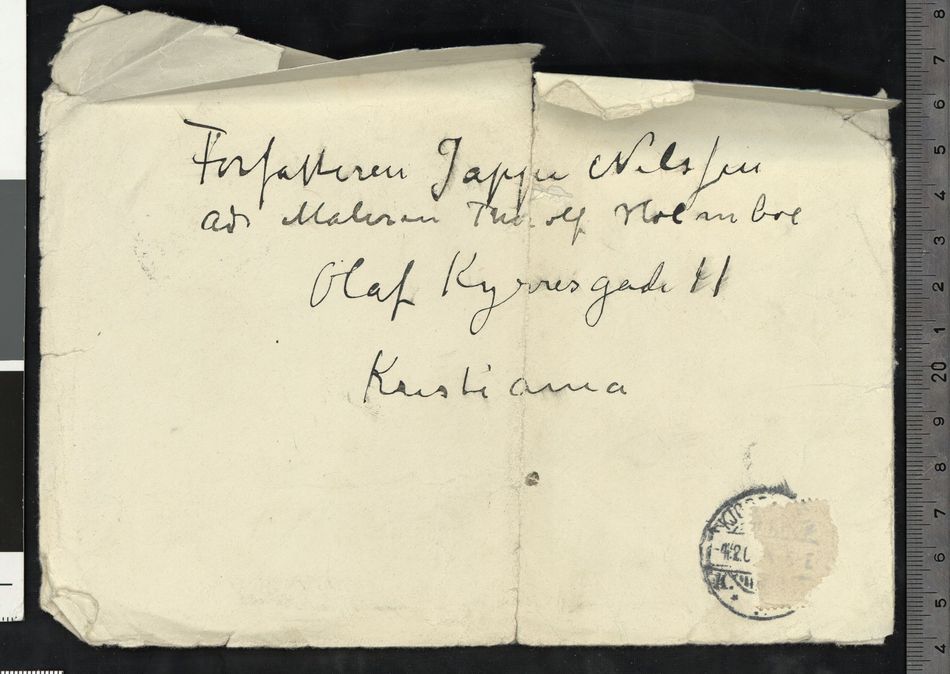 Forfatteren Jappe Nilssen
adr Maleren Thorolf Holmboe
Olaf Kyrresgade 11
Kristiania
KJØB
-4.12.0
K.
8
7
6
5
4
3
2
1
20
9
8
7
6
5
4